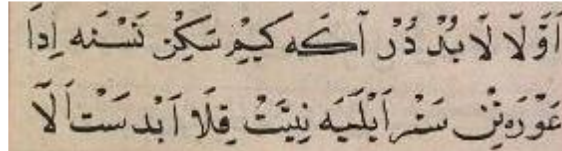 اَوَّلَا لَا بُدْ دُرْ اَكَه كِيمْ سَكِزْ نَسْنَه اِدَا
عَوْرَه تِنْ سَتْر اَيْلَيَه نِيَّتْ قِلَا اَبْدَسْتْ اَلَا